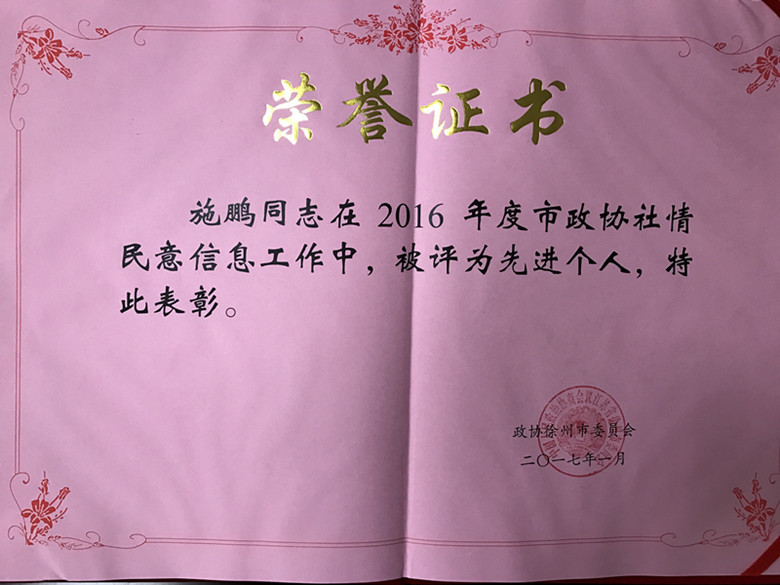 荣誉证书
施鹏同志在 2016 年度市政协社情
民意信息工作中，被评为先进个人，特
此表彰。
政协徐州市委员会
二〇一七年一月